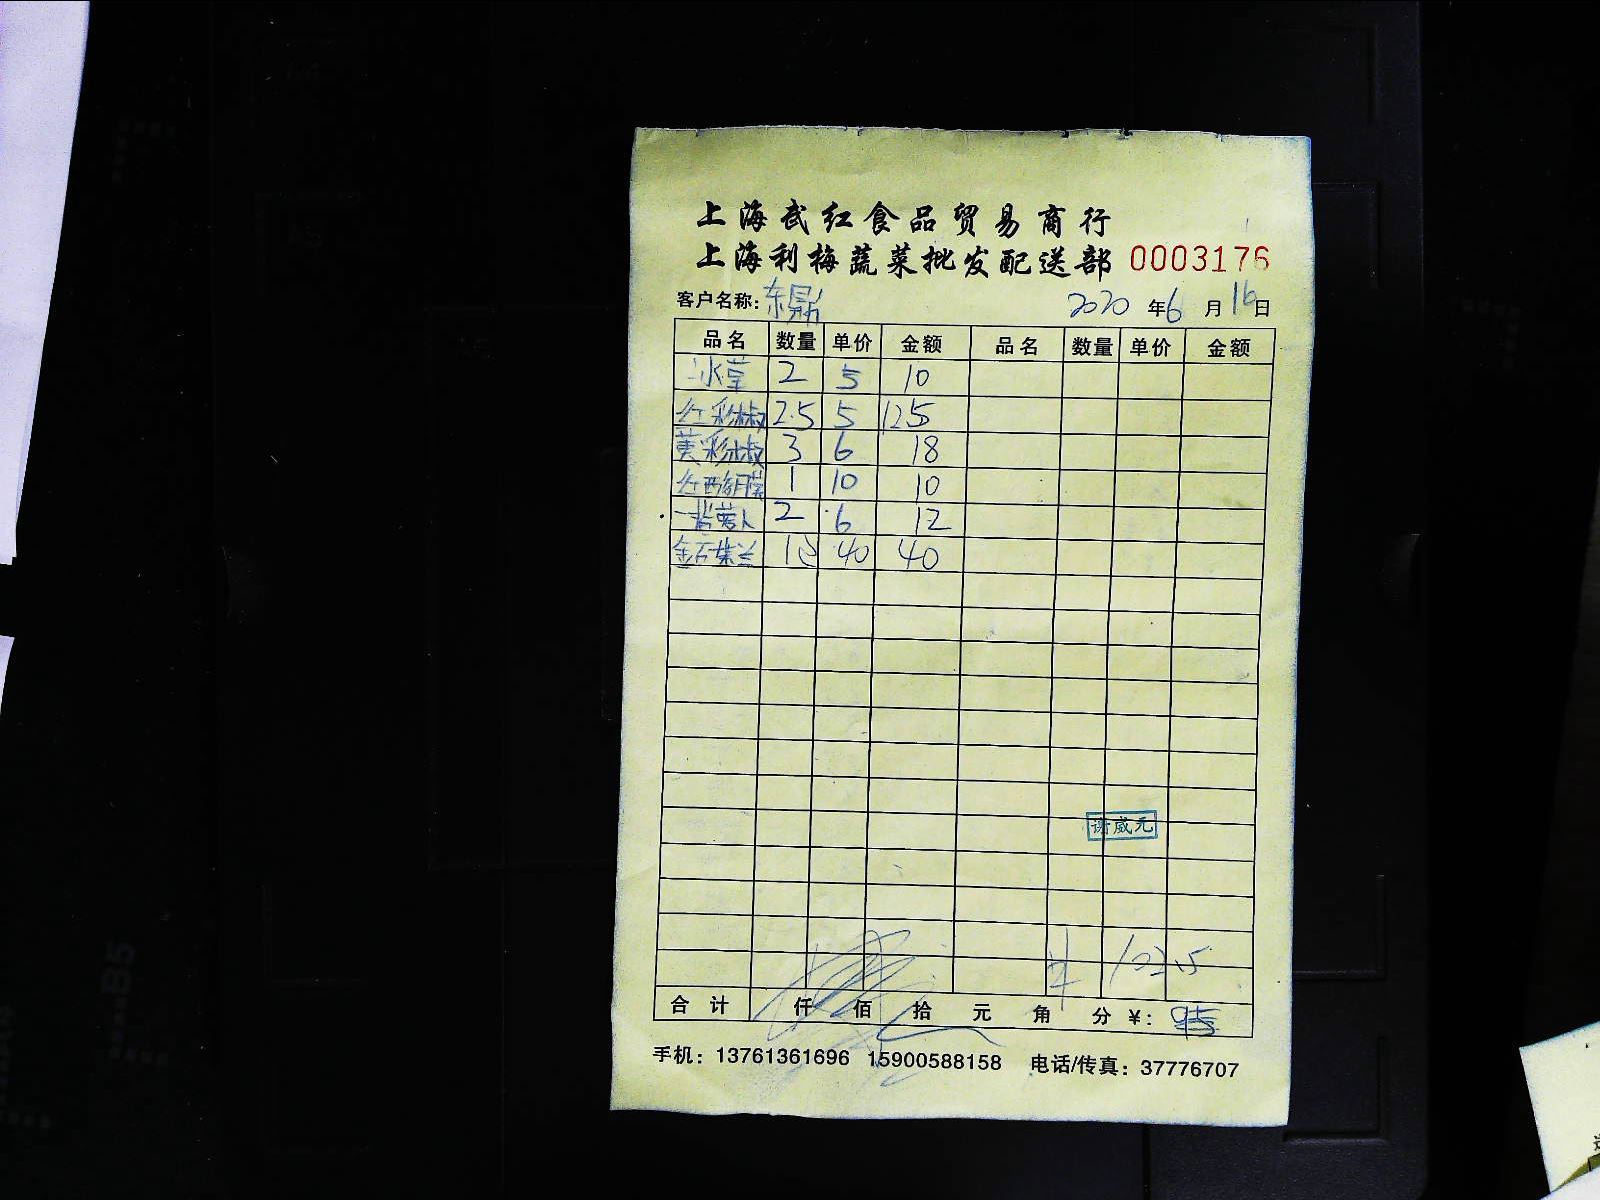 上海武红食品贸易商行
上海利梅蔬菜批发配送部 0003176
客户名称：东鼎 2020年6月16日
品名 数量 单价 金额 品名 数量 单价 金额
2 5 10
红彩椒 2.5 5 12.5
黄彩椒 3 6 18
1 10 10
2 6 12
金 40 40
谢威元
共 102.5
合计 仟 佰 拾 元 角 分 ¥：
手机：13761361696 15900588158 电话/传真：37776707